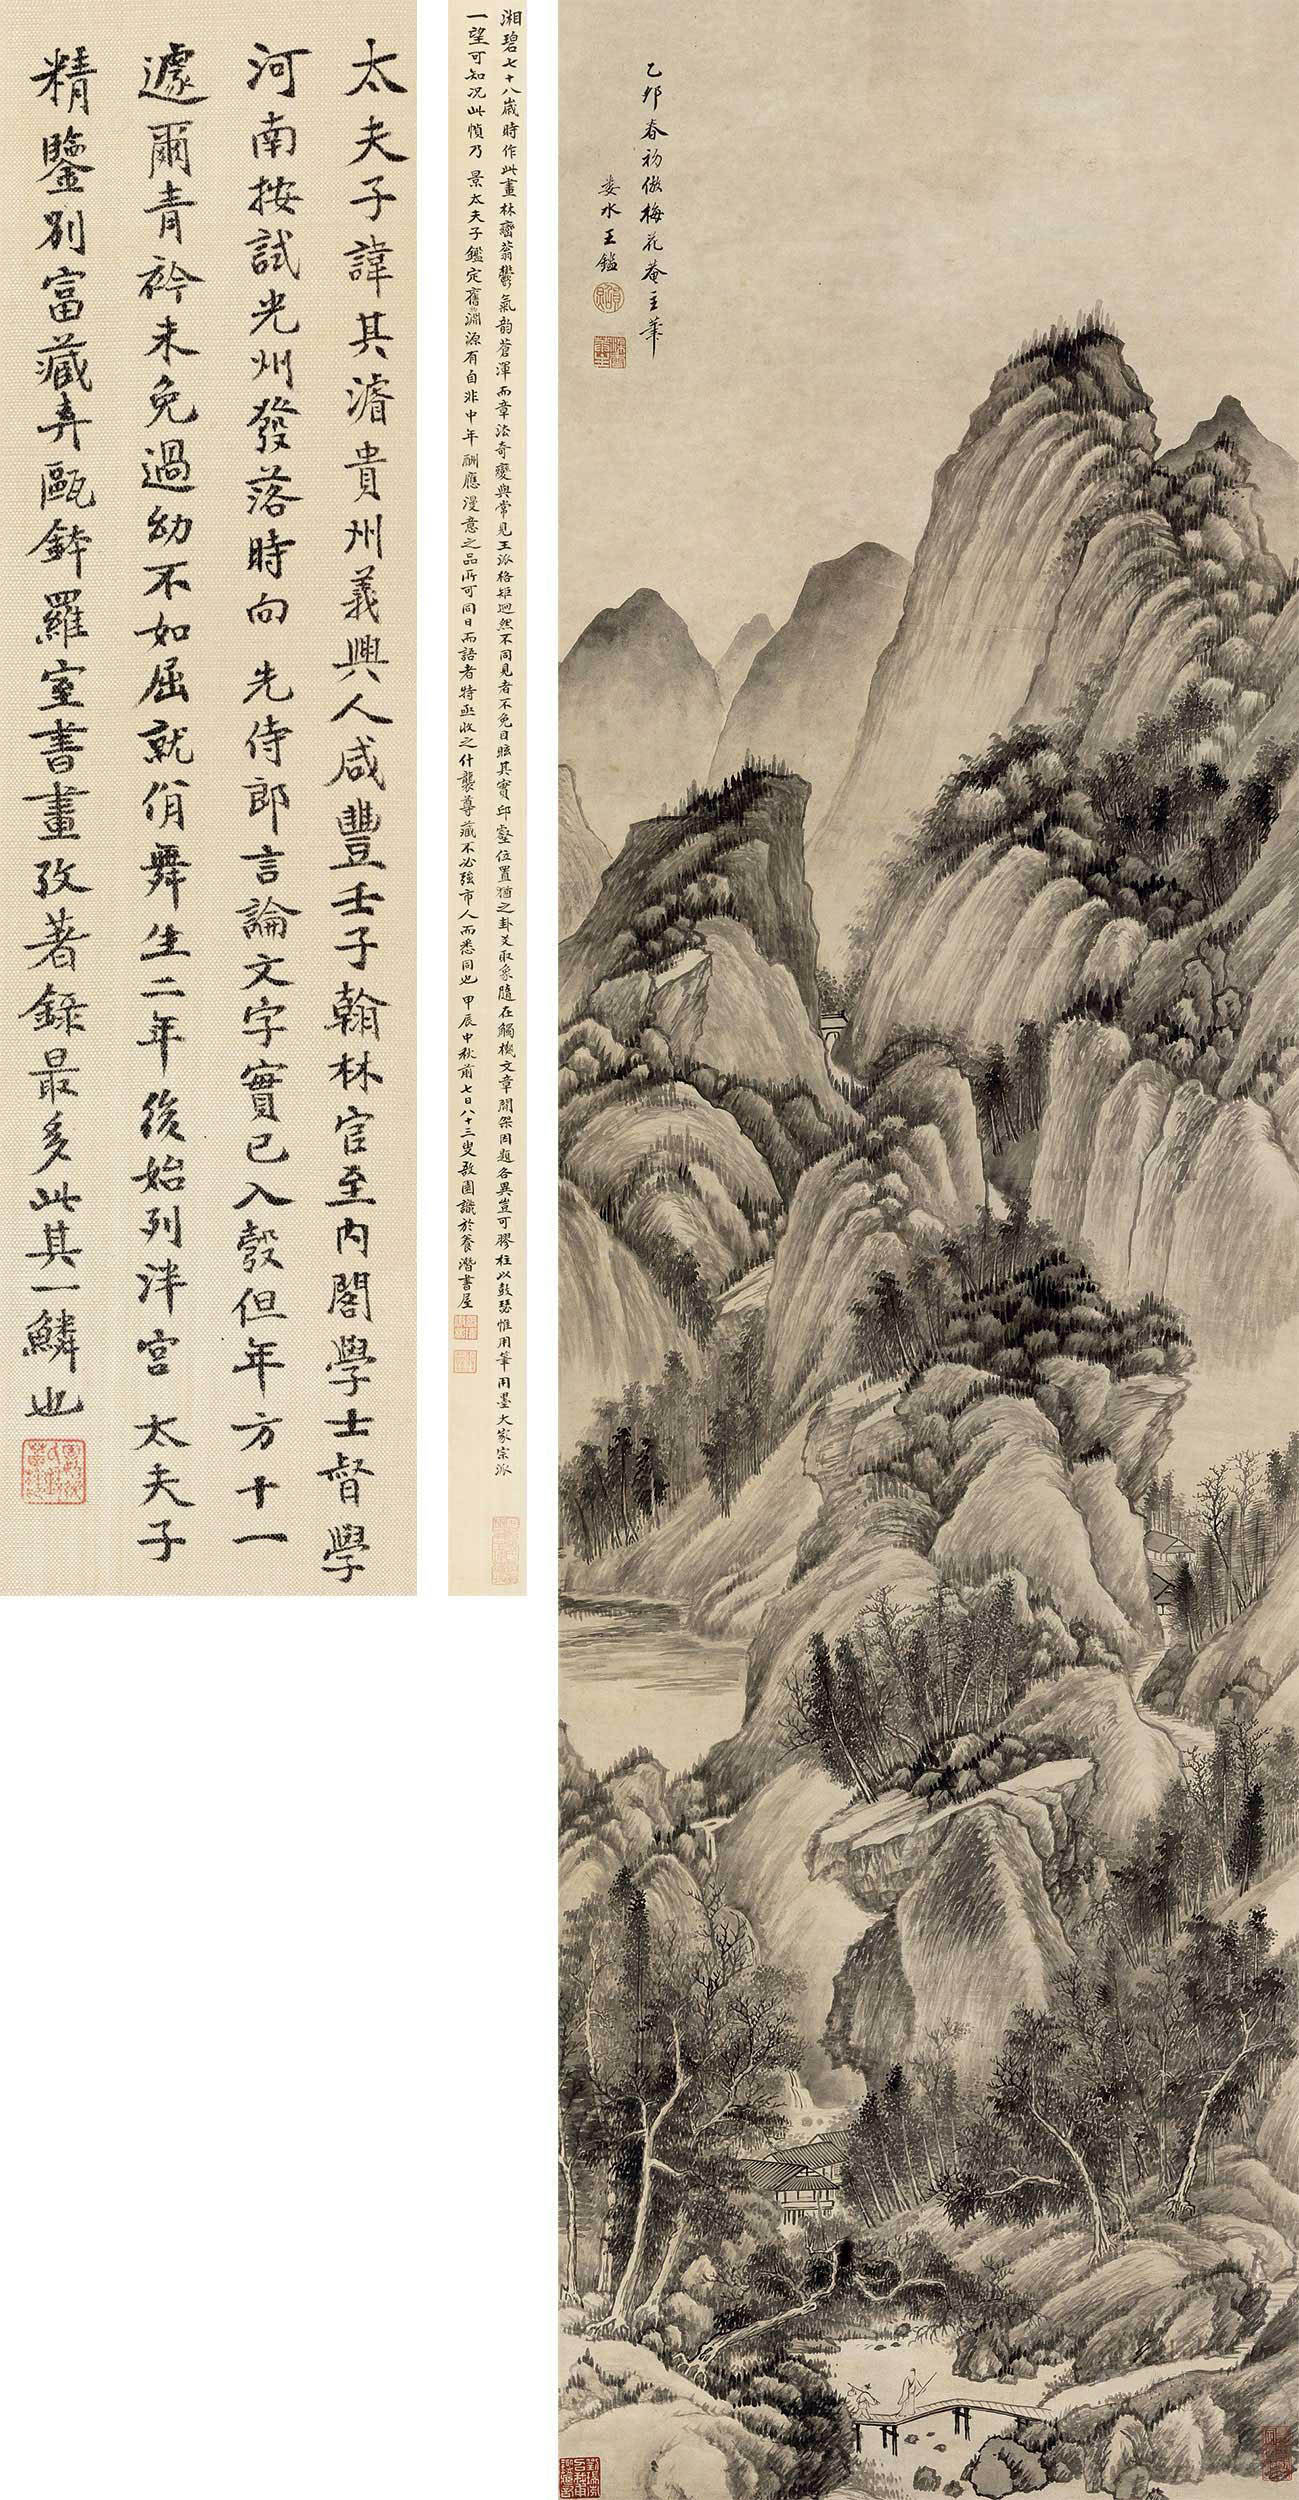 太夫子諱其濬貴州義興人咸豐壬子翰林官至內閣學士督學
河南按試光州發落時向 先侍郎言論文字實已入彀但年方十一
遽爾青衿未免過幼不如屈就佾舞生二年後始列泮宮 太夫子
精鑒別富藏弆甌鉢羅室書畫攷著錄最多此其一鱗也
湘碧七十八歲時作此畫林巒蓊鬱氣韵蒼渾而章法奇變與常見王派格矩迥然不同見者不免目眩其實邱壑位置猶之卦爻取象隨在觸機文章間架因題各異豈可膠柱以鼓瑟惟用筆用墨大家宗派
一望可知况此幀乃 景太夫子鑑定舊淵源有自非中年酬應漫意之品所可同日而語者特亟收之什襲尊藏不必強市人而悉同也 甲辰中秋前七日八十三叟敬園識於養潛書屋
乙卯春初倣梅花菴主筆
婁水王鑑